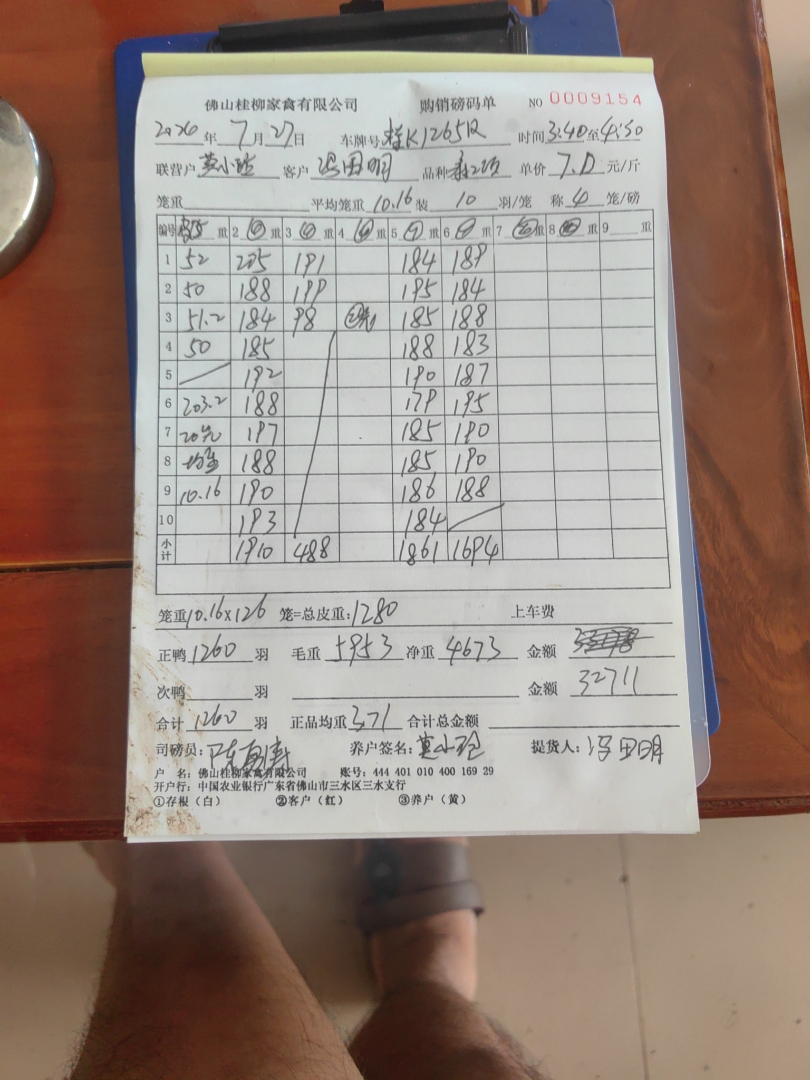 佛山桂柳家禽有限公司 购销磅码单 NO 0009154
2026年7月27日 车牌号桂K1265R 时间3:40至4:30
联营户 莫小 客户 冯田明 品种 单价 7.0 元/斤
笼重 平均笼重10.16装 10 羽/笼 称 4 笼/磅
编号 重 2 重 3 重 4 重 5 重 6 重 7 重 8 重 9 重
1 52 205 191 184 189
2 50 188 199 195 184
3 51.2 184 98 185 188
4 50 185 188 183
5 192 190 187
6 203.2 188 179 195
7 20 197 185 190
8 188 185 190
9 10.16 190 186 188
10 193 184
小计 1910 488 1861 1694
笼重10.16×126 笼=总皮重:1280 上车费
正鸭1260羽 毛重5953 净重4673 金额
次鸭 羽 金额 32711
合计1260羽 正品均重3.71 合计总金额
司磅员:陈 养户签名:莫小 提货人:冯田明
户 名:佛山桂柳家禽有限公司 账号:444 401 010 400 169 29
开户行:中国农业银行广东省佛山市三水区三水支行
①存根(白) ②客户(红) ③养户(黄)